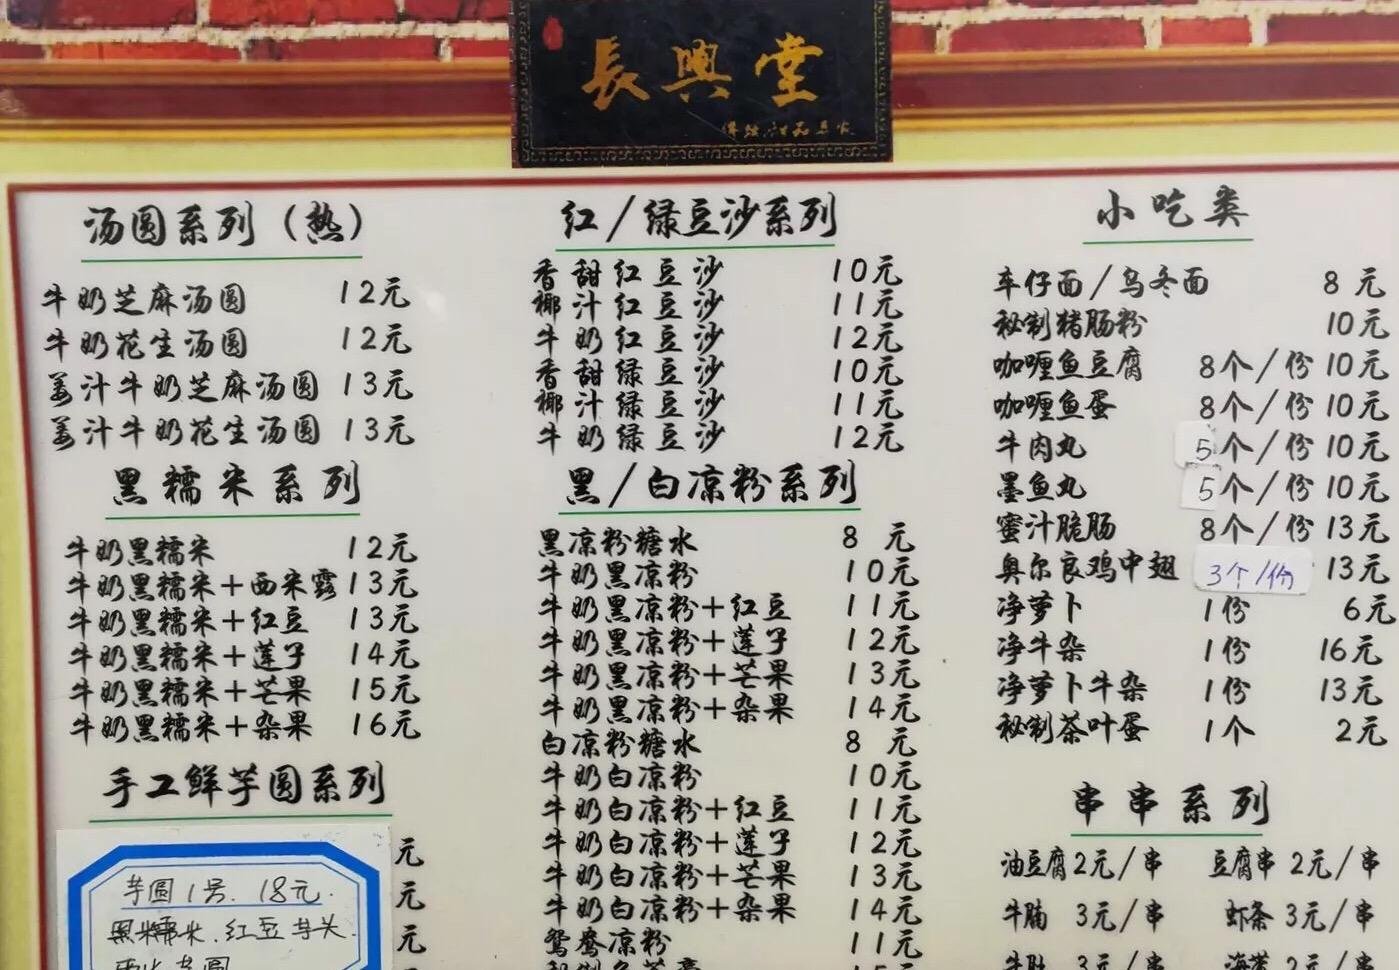 長興堂
汤圆系列（热）
牛奶芝麻汤圆 12元
牛奶花生汤圆 12元
姜汁牛奶芝麻汤圆 13元
姜汁牛奶花生汤圆 13元
黑糯米系列
牛奶黑糯米 12元
牛奶黑糯米+西米露 13元
牛奶黑糯米+红豆 13元
牛奶黑糯米+莲子 14元
牛奶黑糯米+芒果 15元
牛奶黑糯米+杂果 16元
手工鲜芋圆系列
元
元
元
芋圆1号 18元
黑糯米.红豆.芋头.
红/绿豆沙系列
香甜红豆沙 10元
椰汁红豆沙 11元
牛奶红豆沙 12元
香甜绿豆沙 10元
椰汁绿豆沙 11元
牛奶绿豆沙 12元
黑/白凉粉系列
黑凉粉糖水 8元
牛奶黑凉粉 10元
牛奶黑凉粉+红豆 11元
牛奶黑凉粉+莲子 12元
牛奶黑凉粉+芒果 13元
牛奶黑凉粉+杂果 14元
白凉粉糖水 8元
牛奶白凉粉 10元
牛奶白凉粉+红豆 11元
牛奶白凉粉+莲子 12元
牛奶白凉粉+芒果 13元
牛奶白凉粉+杂果 14元
鸳鸯凉粉 11元
小吃类
车仔面/乌冬面 8元
秘制猪肠粉 10元
咖喱鱼豆腐 8个/份 10元
咖喱鱼蛋 8个/份 10元
牛肉丸 5个/份 10元
墨鱼丸 5个/份 10元
蜜汁脆肠 8个/份 13元
奥尔良鸡中翅 3个/份 13元
净萝卜 1份 6元
净牛杂 1份 16元
净萝卜牛杂 1份 13元
秘制茶叶蛋 1个 2元
串串系列
油豆腐 2元/串 豆腐串 2元/串
牛腩 3元/串 虾条 3元/串
牛肚 3元/串 海带 2元/串